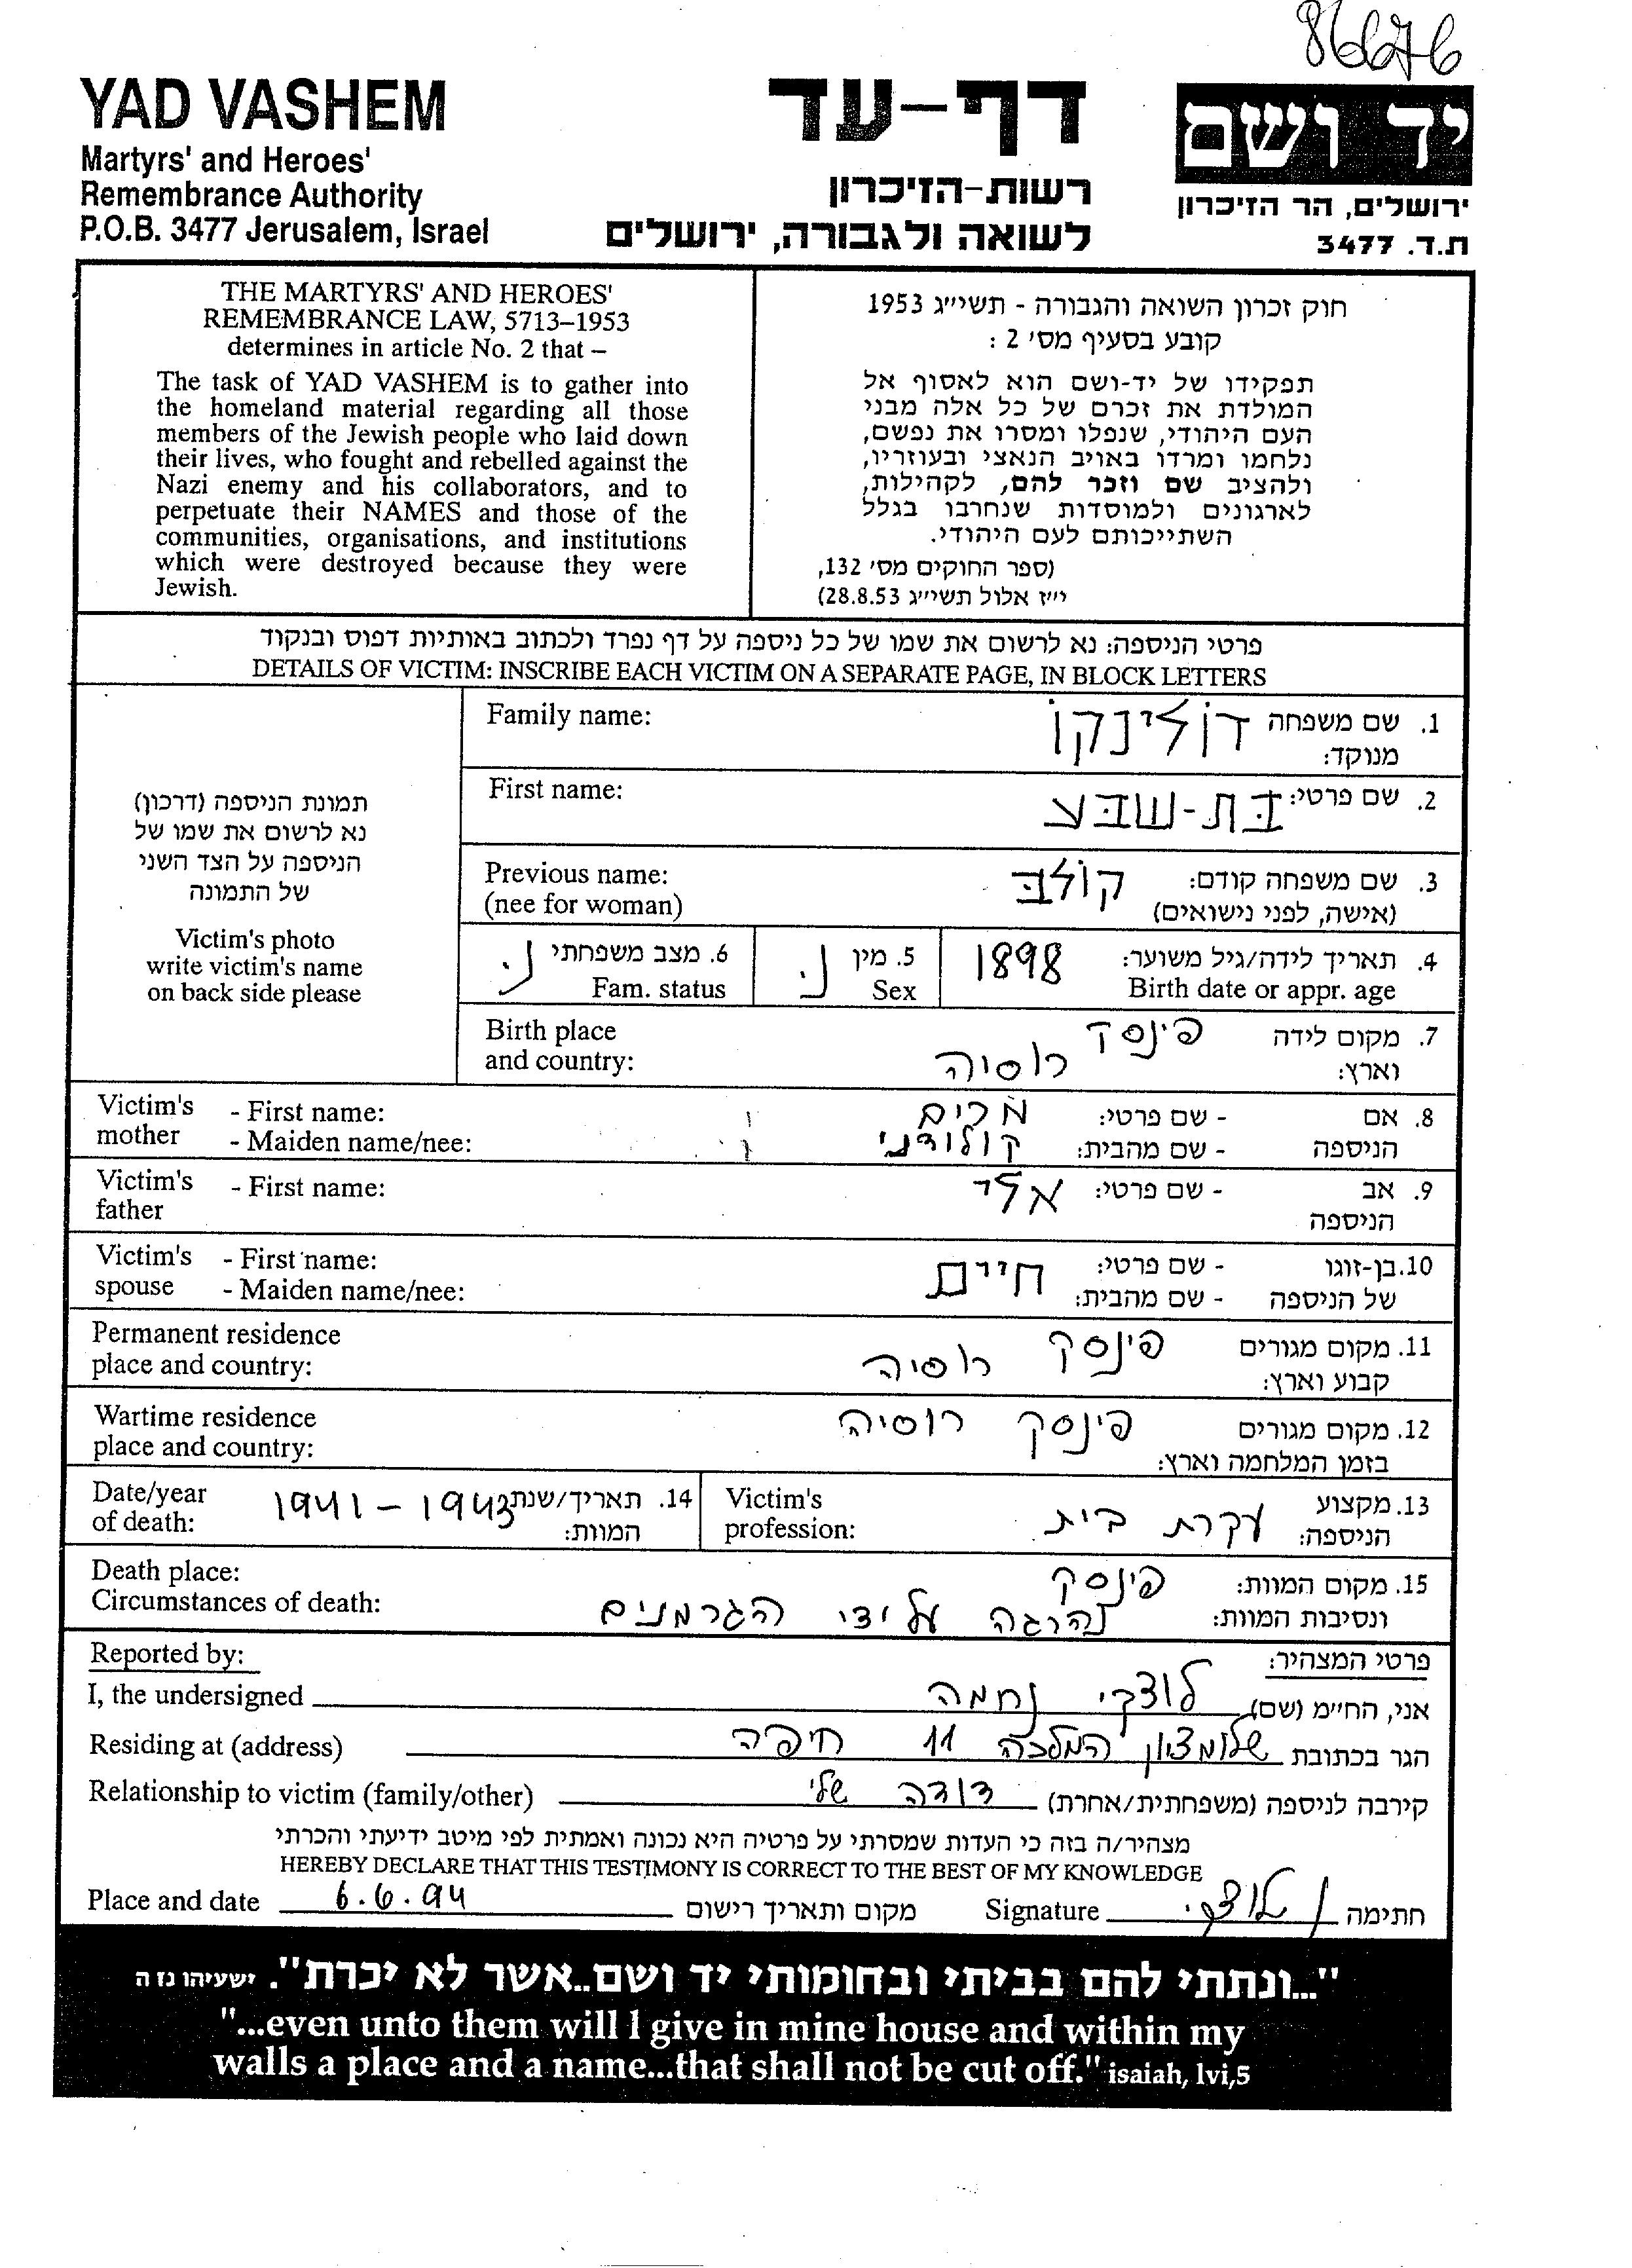 86676
YAD VASHEM
Martyrs' and Heroes'
Remembrance Authority
P.O.B. 3477 Jerusalem, Israel
דף-עד
רשות-הזיכרון
לשואה ולגבורה, ירושלים
יד ושם
ירושלים, הר הזיכרון
ת.ד. 3477
THE MARTYRS' AND HEROES'
REMEMBRANCE LAW, 5713–1953
determines in article No. 2 that –
The task of YAD VASHEM is to gather into
the homeland material regarding all those
members of the Jewish people who laid down
their lives, who fought and rebelled against the
Nazi enemy and his collaborators, and to
perpetuate their NAMES and those of the
communities, organisations, and institutions
which were destroyed because they were
Jewish.
חוק זכרון השואה והגבורה - תשי״ג 1953
קובע בסעיף מס׳ 2 :
תפקידו של יד-ושם הוא לאסוף אל
המולדת את זכרם של כל אלה מבני
העם היהודי, שנפלו ומסרו את נפשם,
נלחמו ומרדו באויב הנאצי ובעוזריו,
ולהציב שם וזכר להם, לקהילות,
לארגונים ולמוסדות שנחרבו בגלל
השתייכותם לעם היהודי.
(ספר החוקים מס׳ 132,
י״ז אלול תשי״ג 28.8.53)
פרטי הניספה: נא לרשום את שמו של כל ניספה על דף נפרד ולכתוב באותיות דפוס ובנקוד
DETAILS OF VICTIM: INSCRIBE EACH VICTIM ON A SEPARATE PAGE, IN BLOCK LETTERS
תמונת הניספה (דרכון)
נא לרשום את שמו של
הניספה על הצד השני
של התמונה
Victim's photo
write victim's name
on back side please
Family name: דולינקו 1. שם משפחה
מנוקד:
First name: בת-שבע 2. שם פרטי:
Previous name: קולב 3. שם משפחה קודם:
(nee for woman) (אישה, לפני נישואים)
נ. 6. מצב משפחתי נ. 5. מין 1898 4. תאריך לידה/גיל משוער:
Fam. status Sex Birth date or appr. age
Birth place פינסק 7. מקום לידה
and country: רוסיה וארץ:
Victim's - First name: מרים - שם פרטי: 8. אם
mother - Maiden name/nee: קולודני - שם מהבית: הניספה
Victim's - First name: אלי - שם פרטי: 9. אב
father הניספה
Victim's - First name: חיים - שם פרטי: 10. בן-זוגו
spouse - Maiden name/nee: - שם מהבית: של הניספה
Permanent residence פינסק רוסיה 11. מקום מגורים
place and country: קבוע וארץ:
Wartime residence פינסק רוסיה 12. מקום מגורים
place and country: בזמן המלחמה וארץ:
Date/year 1941 – 1943 14. תאריך/שנת Victim's עקרת בית 13. מקצוע
of death: המוות: profession: הניספה:
Death place: פינסק 15. מקום המוות:
Circumstances of death: נהרגה על ידי הגרמנים ונסיבות המוות:
Reported by: פרטי המצהיר:
I, the undersigned לוצקי נחמה אני, החי״מ (שם)
Residing at (address) שלומציון המלכה 11 חיפה הגר בכתובת
Relationship to victim (family/other) דודה שלי קירבה לניספה (משפחתית/אחרת)
מצהיר/ה בזה כי העדות שמסרתי על פרטיה היא נכונה ואמתית לפי מיטב ידיעתי והכרתי
HEREBY DECLARE THAT THIS TESTIMONY IS CORRECT TO THE BEST OF MY KNOWLEDGE
Place and date 6.6.94 מקום ותאריך רישום Signature נ לוצקי חתימה
"...ונתתי להם בביתי ובחומותי יד ושם..אשר לא יכרת". ישעיהו נז ה
"...even unto them will I give in mine house and within my
walls a place and a name...that shall not be cut off." isaiah, lvi,5